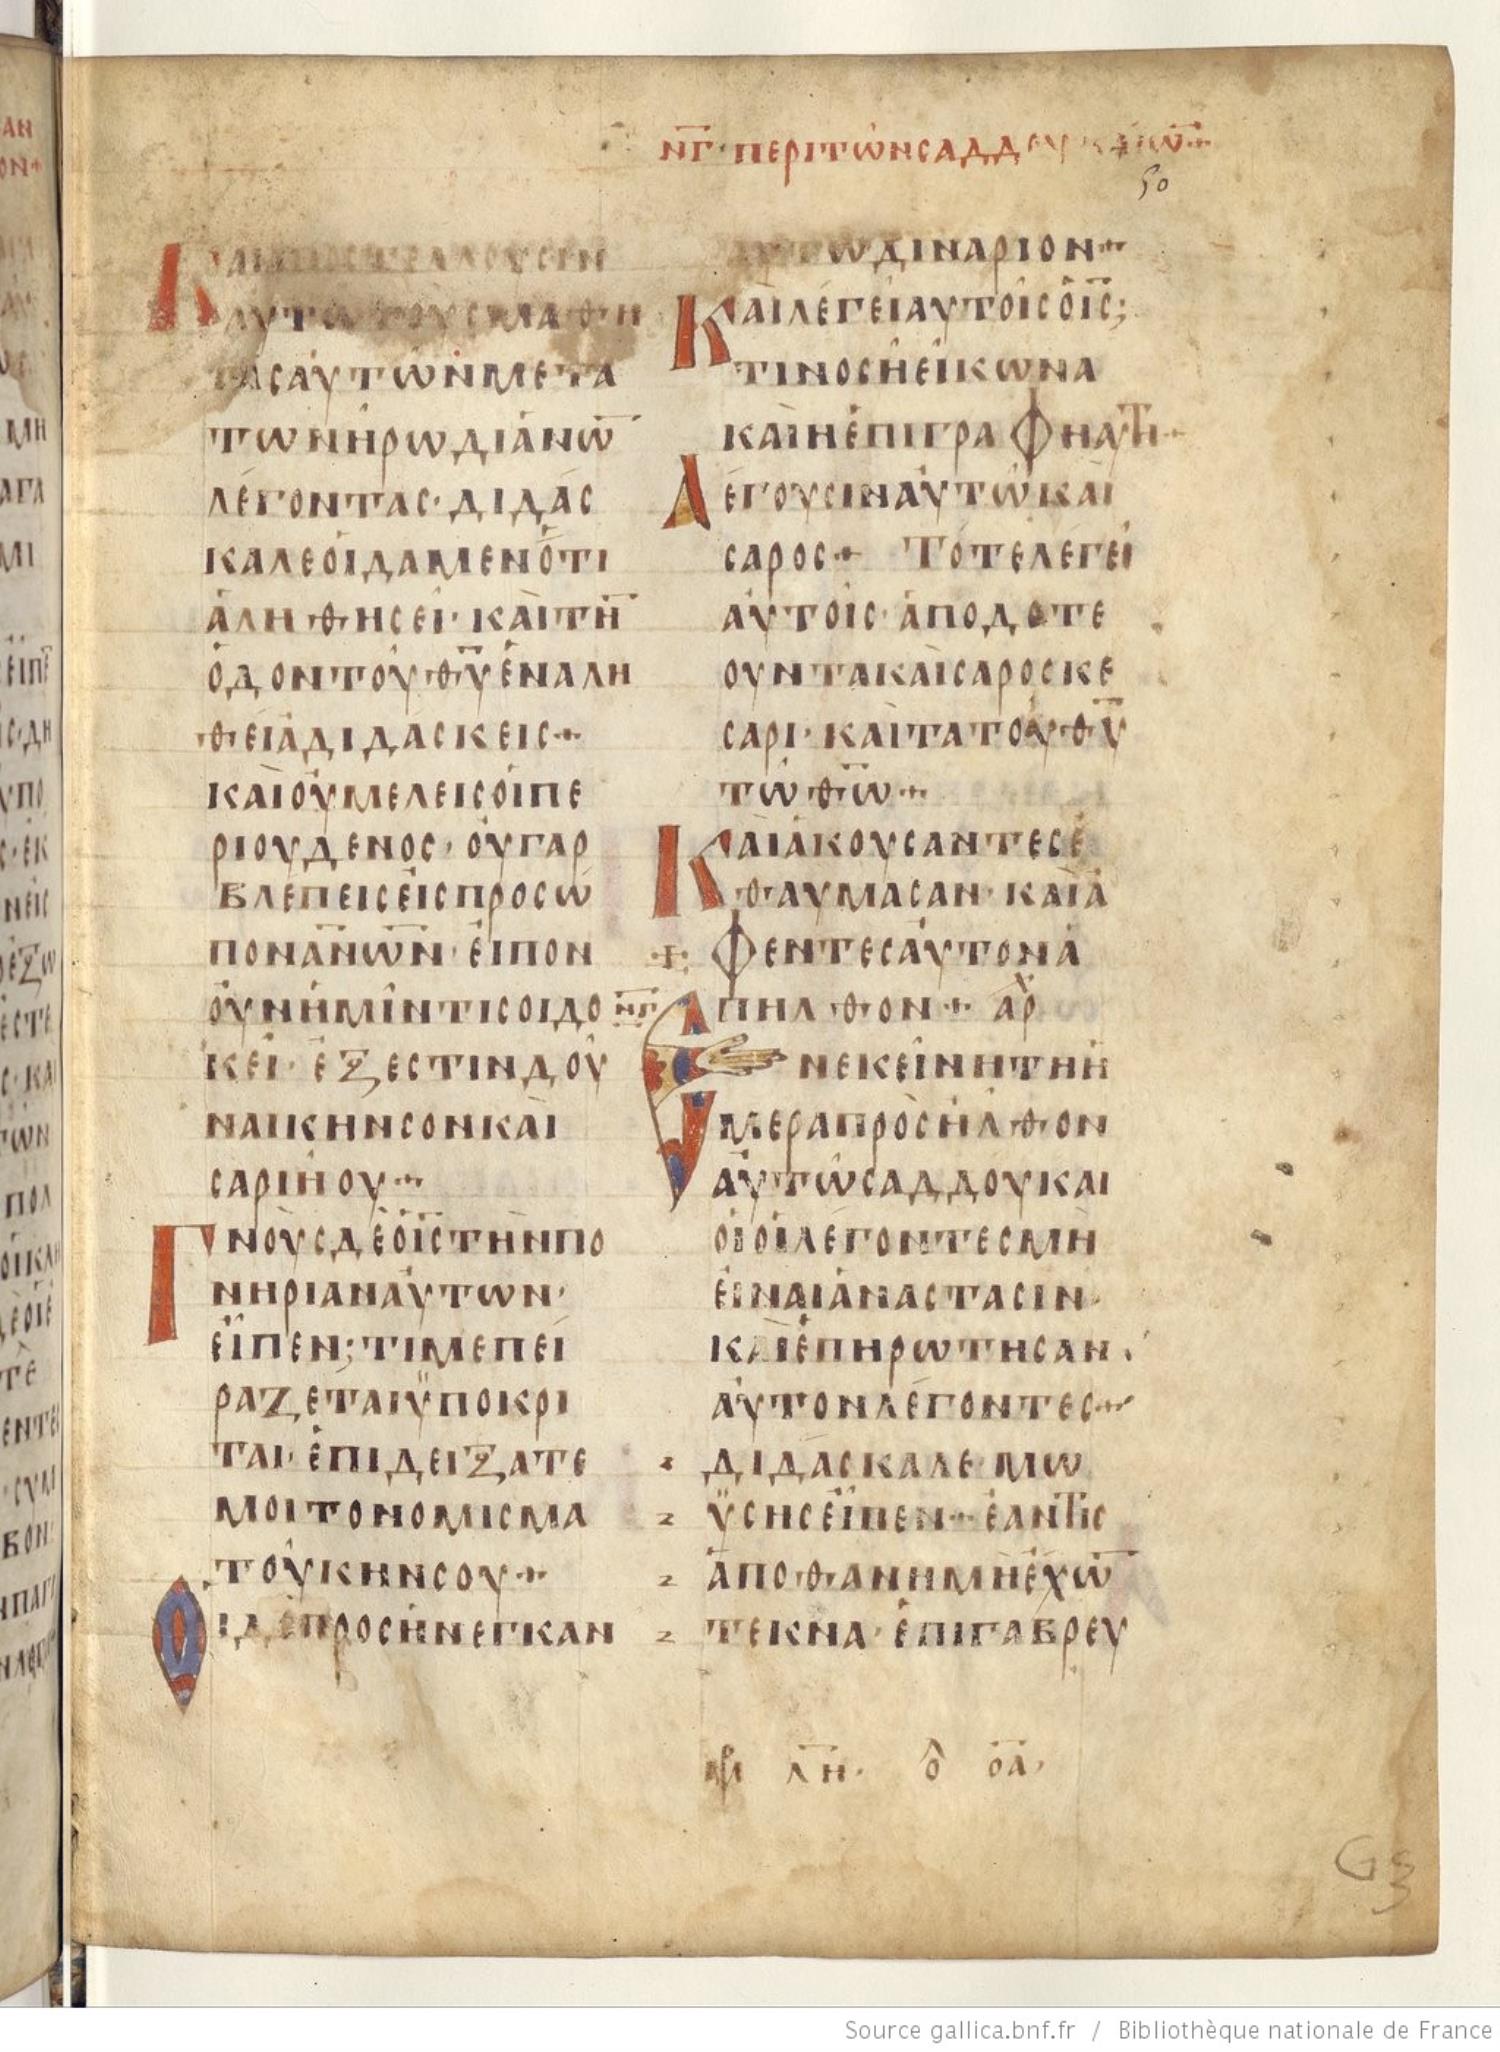 ΝΓ· ΠΕΡΙΤΩΝΣΑΔΔΟΥΚΑΙΩ+
50
ΚΑΙΑΠΟΣΤΕΛΛΟΥΣΙΝ
ΑΥΤΩΤΟΥΣΜΑΘΗ
ΤΑΣΑΥΤΩΝΜΕΤΑ
ΤΩΝΗΡΩΔΙΑΝΩ̅
ΛΕΓΟΝΤΑΣ· ΔΙΔΑΣ
ΚΑΛΕΟΙΔΑΜΕΝΟΤΙ
ΑΛΗΘΗΣΕΙ· ΚΑΙΤΗ̅
ΟΔΟΝΤΟΥΘ̅Υ̅ΕΝΑΛΗ
ΘΕΙΑΔΙΔΑΣΚΕΙΣ+
ΚΑΙΟΥΜΕΛΕΙΣΟΙΠΕ
ΡΙΟΥΔΕΝΟΣ· ΟΥΓΑΡ
ΒΛΕΠΕΙΣΕΙΣΠΡΟΣΩ
ΠΟΝΑ̅Ν̅Ω̅Ν̅· ΕΙΠΟΝ
ΟΥΝΗΜΙΝΤΙΣΟΙΔΟ
ΚΕΙ· ΕΞΕΣΤΙΝΔΟΥ
ΝΑΙΚΗΝΣΟΝΚΑΙ
ΣΑΡΙΗΟΥ+
ΓΝΟΥΣΔΕΟΙ̅Σ̅ΤΗΝΠΟ
ΝΗΡΙΑΝΑΥΤΩΝ·
ΕΙΠΕΝ; ΤΙΜΕΠΕΙ
ΡΑΖΕΤΑΙΫΠΟΚΡΙ
ΤΑΙ· ΕΠΙΔΕΙΞΑΤΕ
ΜΟΙΤΟΝΟΜΙΣΜΑ
ΤΟΥΚΗΝΣΟΥ+
ΟΙΔΕΠΡΟΣΗΝΕΓΚΑΝ
ΑΥΤΩΔΙΝΑΡΙΟΝ+
ΚΑΙΛΕΓΕΙΑΥΤΟΙΣΟΙ̅Σ̅;
ΤΙΝΟΣΗΕΙΚΩΝΑ
ΚΑΙΗΕΠΙΓΡΑΦΗΑΥΤΗ+
ΛΕΓΟΥΣΙΝΑΥΤΩΚΑΙ
ΣΑΡΟΣ+ ΤΟΤΕΛΕΓΕΙ
ΑΥΤΟΙΣ· ΑΠΟΔΟΤΕ
ΟΥΝΤΑΚΑΙΣΑΡΟΣΚΕ
ΣΑΡΙ· ΚΑΙΤΑΤΟΥΘ̅Υ̅
ΤΩΘ̅Ω̅+
ΚΑΙΑΚΟΥΣΑΝΤΕΣΕ
ΘΑΥΜΑΣΑΝ· ΚΑΙΑ
ΦΕΝΤΕΣΑΥΤΟΝΑ
Ν̅Γ̅ ΠΗΛΘΟΝ+ ΑΡΧ
ΕΝΕΚΕΙΝΗΤΗΗ
ΜΕΡΑΠΡΟΣΗΛΘΟΝ
ΑΥΤΩΣΑΔΔΟΥΚΑΙ
ΟΙΟΙΛΕΓΟΝΤΕΣΜΗ
ΕΙΝΑΙΑΝΑΣΤΑΣΙΝ·
ΚΑΙΕΠΗΡΩΤΗΣΑΝ
ΑΥΤΟΝΛΕΓΟΝΤΕΣ+
ΔΙΔΑΣΚΑΛΕ· ΜΩ
ΫΣΗΣΕΙΠΕΝ+ ΕΑΝΤΙΣ
ΑΠΟΘΑΝΗΜΗΕΧΩ̅
ΤΕΚΝΑ· ΕΠΙΓΑΒΡΕΥ
Λ̅Η̅· Ο Ο̅Α̅·
G 3
Source gallica.bnf.fr / Bibliothèque nationale de France